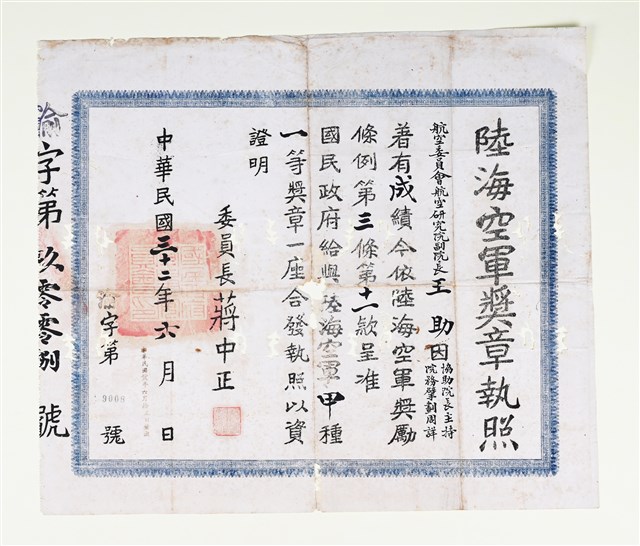 陸海空軍獎章執照
航空委員會航空研究院副院長王助因協助院長主持院務擘劃周詳
著有成績今依陸海空軍獎勵
條例第三條第十一款呈准
國民政府給與陸海空軍甲種
一等獎章一座合發執照以資
證明
委員長蔣中正
中華民國三十二年六月 日
字第 9008 號
字第玖零零捌號